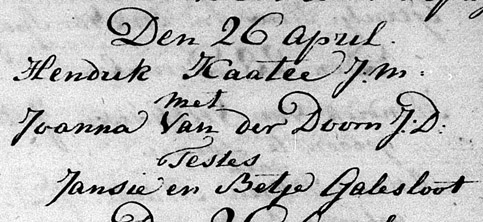 Den 26 April.
Hendrik Kaatee J.m:
met
Joanna Van der Doorn J:D:
Testes
Jansie en Betje Galesloot